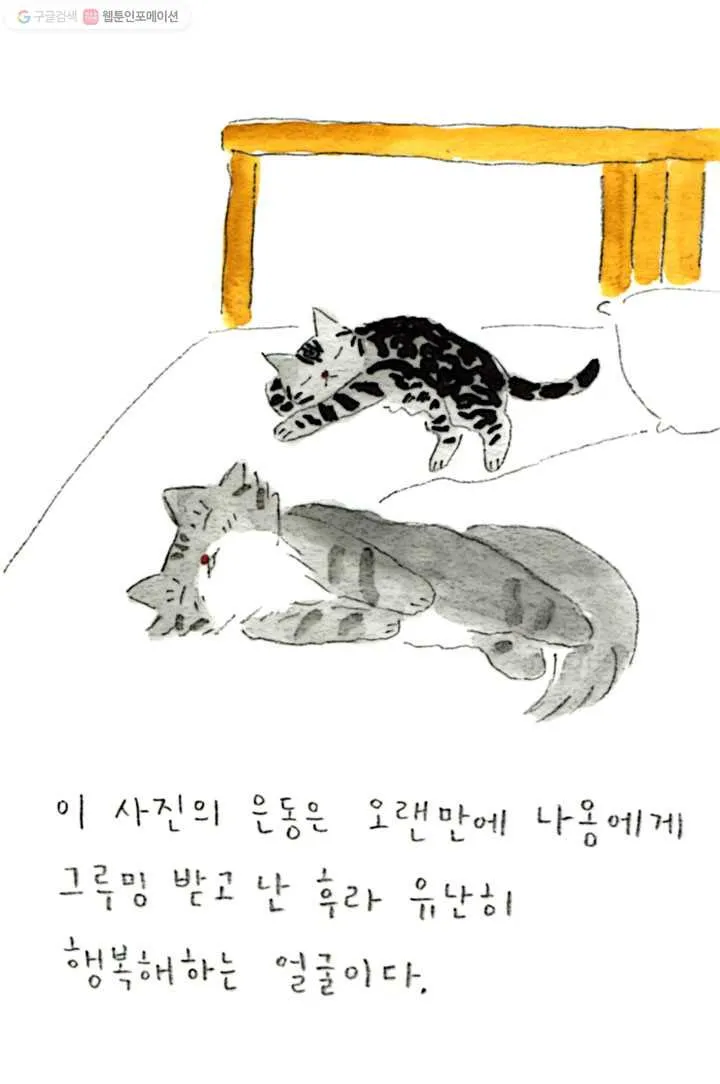 구글검색 웹툰인포메이션
이 사진의 은동은 오랜만에 나옹에게
그루밍 받고 난 후라 유난히
행복해하는 얼굴이다.